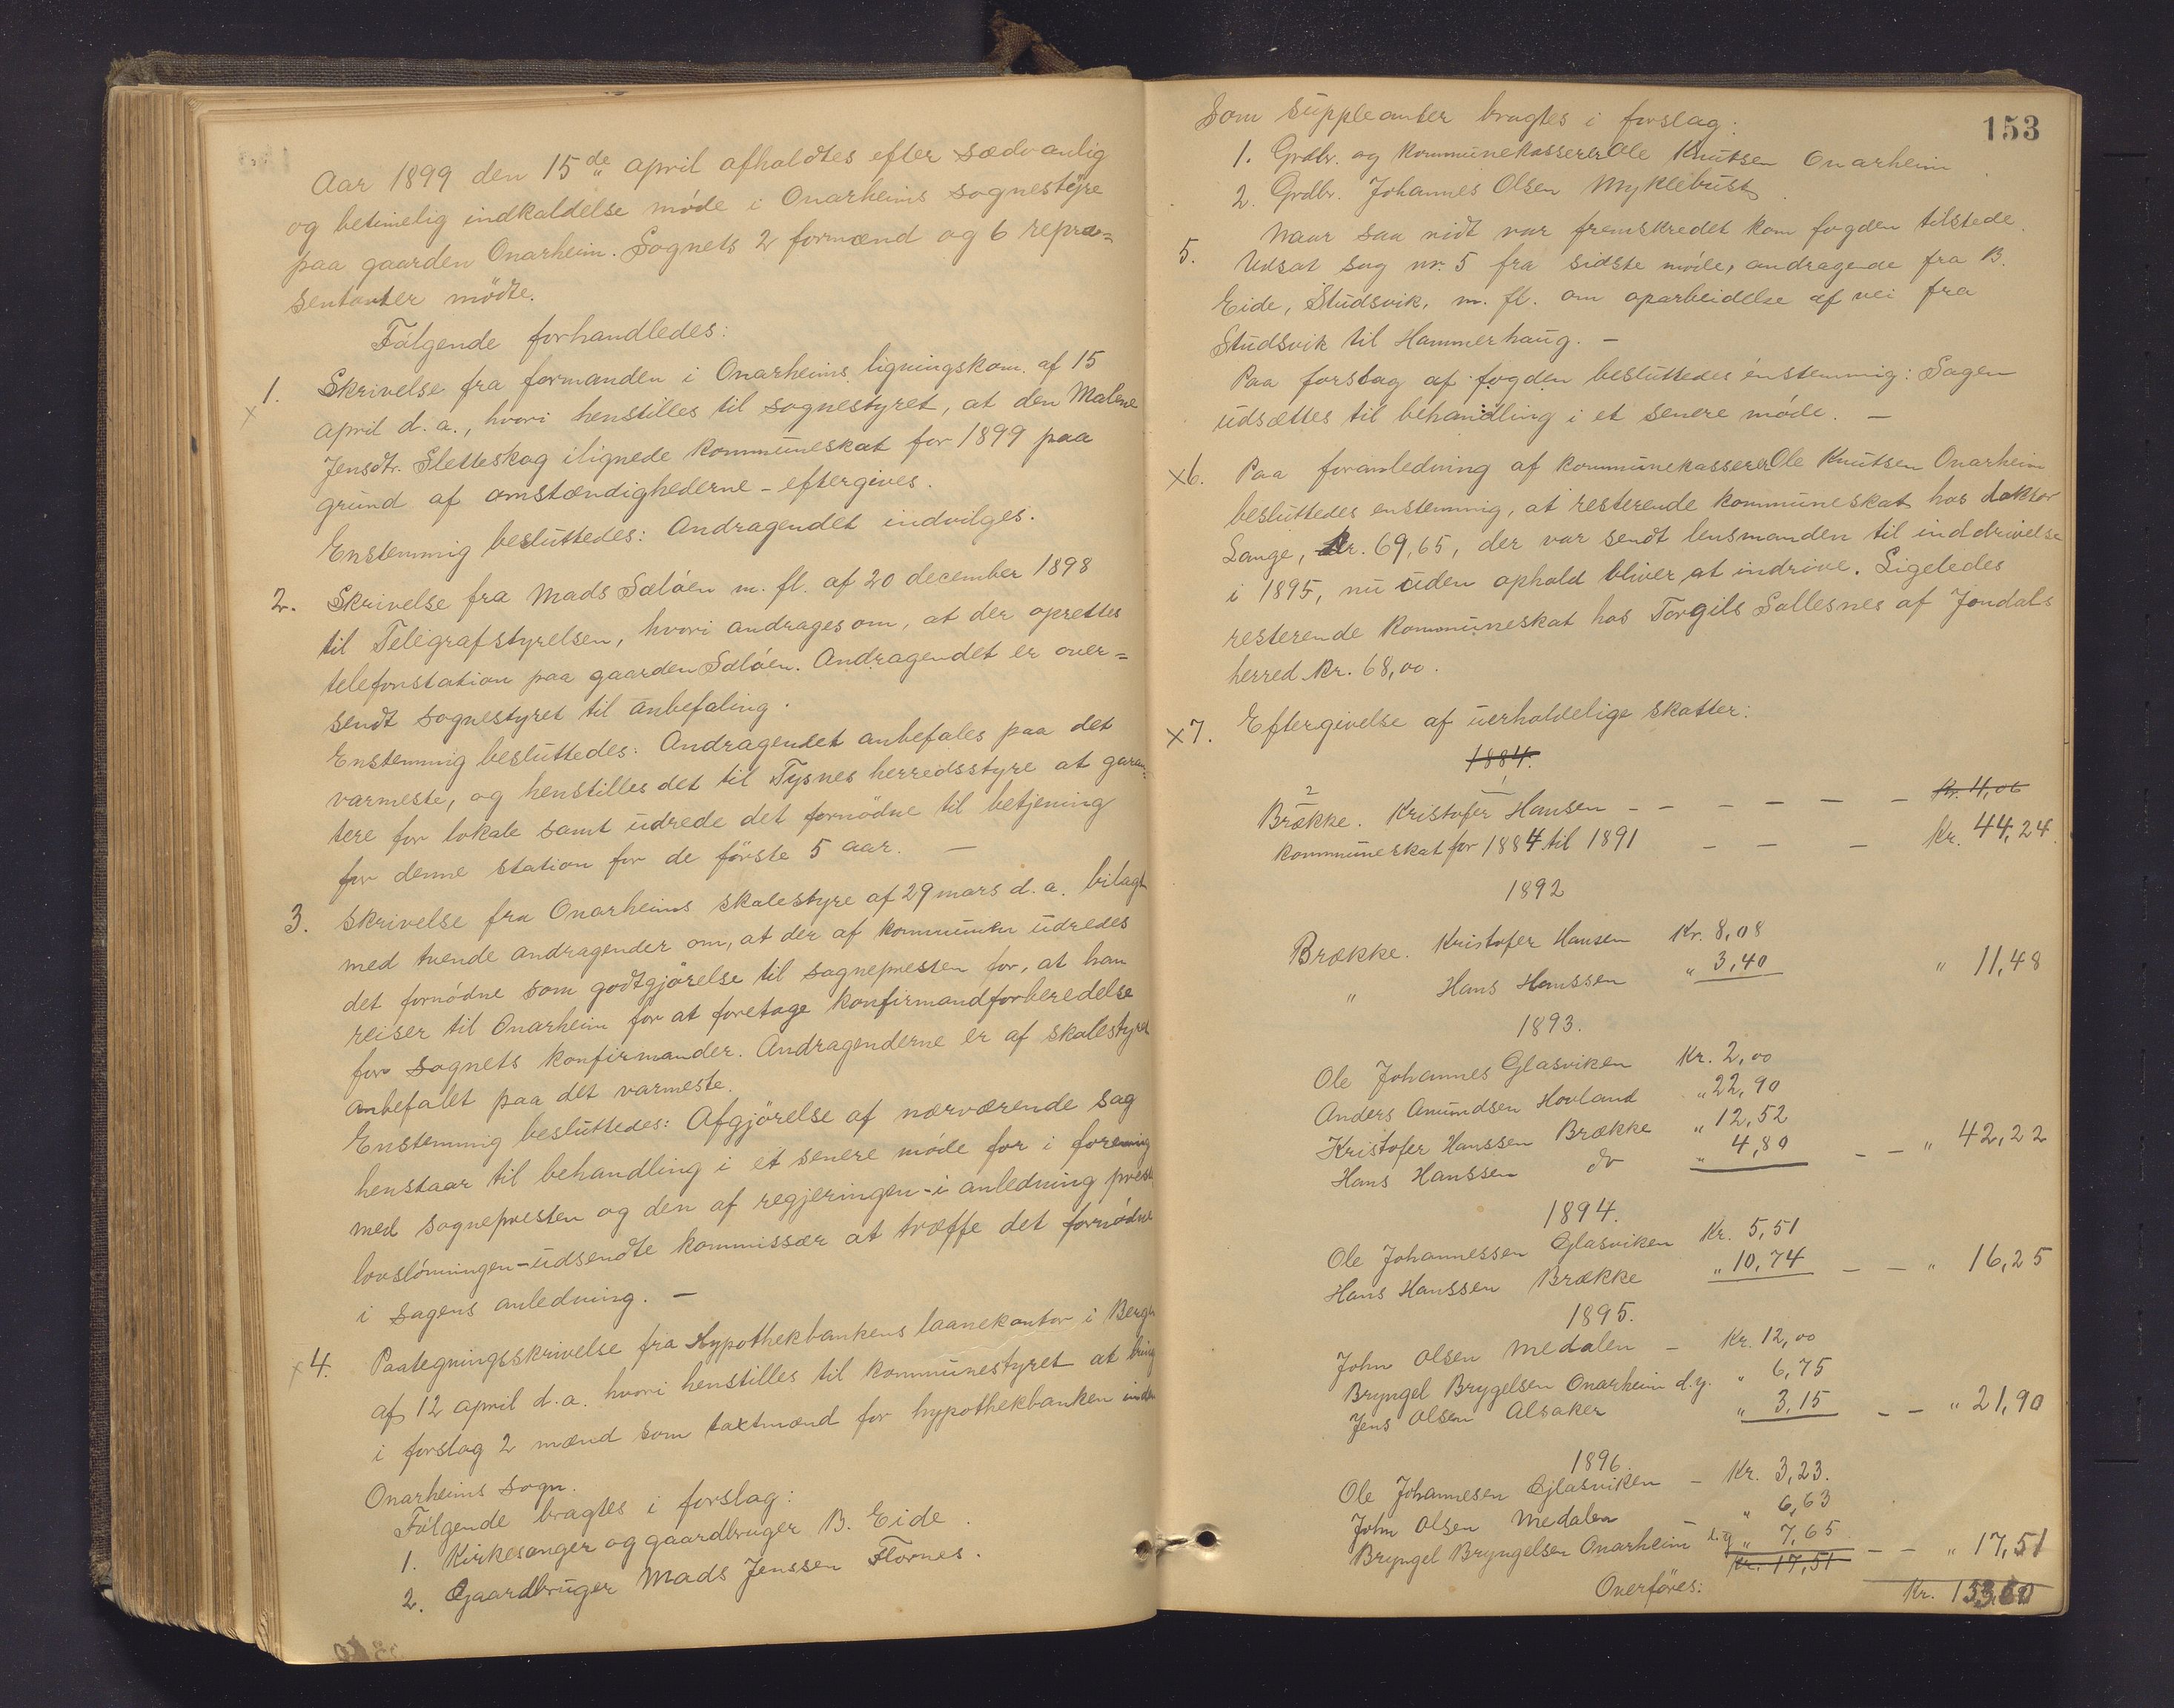 Aar 1899 den 15de april afholdtes efter sædvanlig
og betimelig indkaldelse møde i Onarheims sognestyre
paa gaarden Onarheim. Sognets 2 formænd og 6 repræ=
sentanter mødte.
Følgende forhandledes:
x 1. Skrivelse fra formanden i Onarheims ligningskom. af 15
april d. a., hvori henstilles til sognestyret, at den Malene
Jensdtr. Sletteskog ilignede kommuneskat for 1899 paa
grund af omstændighederne - eftergives.
Enstemmig besluttedes: Andragendet indvilges.
2. Skrivelse fra Mads Sæløen m. fl. af 20 december 1898
til Telegrafstyrelsen, hvori andrages om, at der oprettes
telefonstation paa gaarden Sæløen. Andragendet er over=
sendt sognestyret til anbefaling.
Enstemmig besluttedes: Andragendet anbefales paa det
varmeste, og henstilles det til Tysnes herredsstyre at garan=
tere for lokale samt udrede det fornødne til betjening
for denne station for de første 5 aar. —
3. Skrivelse fra Onarheims skolestyre af 29 mars d. a. bilagt
med tvende andragender om, at der af kommunen udredes
det fornødne som godtgjørelse til sognepresten for, at han
reiser til Onarheim for at foretage konfirmandforberedelse
for sognets konfirmander. Andragenderne er af skolestyret
anbefalet paa det varmeste.
Enstemmig besluttedes: Afgjørelse af nærværende sag
henstaar til behandling i et senere møde for i forening
med sognepresten og den af regjeringen - i anledning preste
lovslønningen - udsendte kommissær at træffe det fornødne
i sagens anledning. —
x 4. Paategningsskrivelse fra Hypothekbankens laanekontor i Bergen
af 12 april d. a. hvori henstilles til kommunestyret at bring
i forslag 2 mænd som taxtmænd for hypothekbanken inden
Onarheims sogn.
Følgende bragtes i forslag:
1. Kirkesanger og gaardbruger B. Eide.
2. Gaardbruger Mads Jenssen Flornes.
153
Som suppleanter bragtes i forslag:
1. Grdbr. og kommunekasserer Ole Knutsen Onarheim
2. Grdbr. Johannes Olsen Myklebust
Naar saa vidt var fremskredet kom fogden tilstede.
5. Udsat sag nr. 5 fra sidste møde, andragende fra B.
Eide, Studsvik, m. fl. om oparbeidelse af vei fra
Studsvik til Hammerhaug. —
Paa forslag af fogden besluttedes enstemmig: Sagen
udsættes til behandling i et senere møde. —
x6. Paa foranledning af kommunekasserer Ole Knutsen Onarheim
besluttedes enstemmig, at resterende kommuneskat hos doktor
Lange, kr. 69,65, der var sendt lensmanden til inddrivelse
i 1895, nu uden ophold bliver at indrive. Ligeledes
resterende kommuneskat hos Torgils Sollesnes af Jondals
herred kr. 68,00.
x7. Eftergivelse af uerholdelige skatter:
1884.
Brække. Kristofer Hansen — — — — — — kr. 4,06
kommuneskat for 1884 til 1891 — — — kr. 44,24.
1892
Brække. Kristofer Hansen Kr. 8,08
" Hans Hanssen " 3,40 " 11,48
1893.
Ole Johannes Glasviken Kr. 2,00
Anders Amundsen Hovland " 22,90
Kristofer Hanssen Brække " 12,52
Hans Hanssen do " 4,80 — — " 42,22
1894.
Ole Johannessen Glasviken Kr. 5,51
Hans Hanssen Brække " 10,74 — — " 16,25
1895.
John Olsen Medalen — Kr. 12,00
Bryngel Brygelsen Onarheim d.y. " 6,75
Jens Olsen Alsaker " 3,15 — — " 21,90
1896.
Ole Johannesen Gjlasviken — Kr. 3,23.
John Olsen Medalen " 6,63
Bryngel Bryngelsen Onarheim d.y " 7,65 — — " 17,51
Kr. 17,51
Overføres: Kr. 153,60